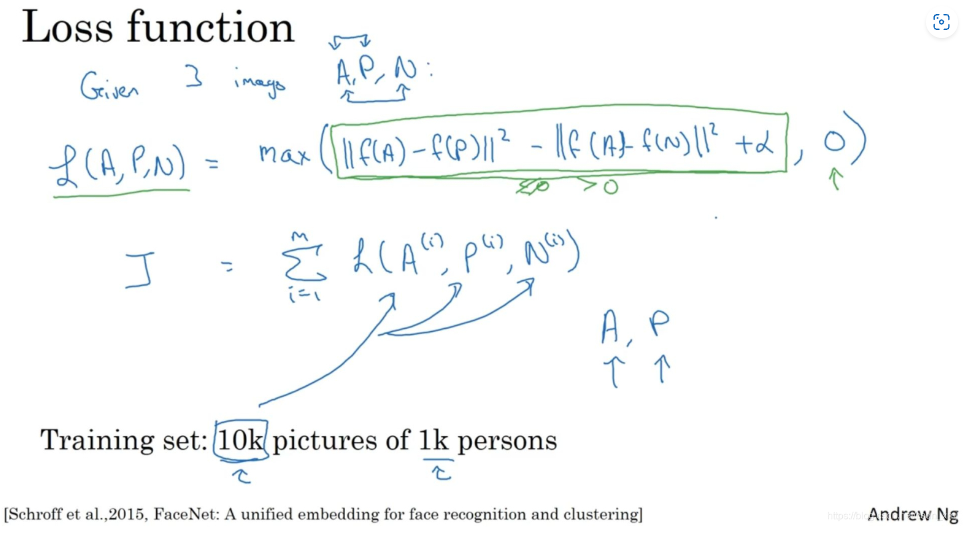 Loss function
Given 3 images A, P, N:
L(A,P,N) = max(||f(A) – f(P)||² – ||f(A) – f(N)||² + α, 0)
≤0 >0
J = Σ L(A⁽ⁱ⁾, P⁽ⁱ⁾, N⁽ⁱ⁾)
m
i=1
A, P
Training set: 10k pictures of 1k persons
[Schroff et al.,2015, FaceNet: A unified embedding for face recognition and clustering]
Andrew Ng